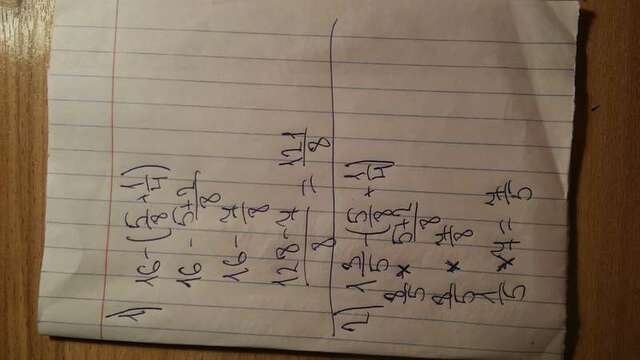 1) 16 - (5/8 + 1/4)
16 - 5+2/8
16 - 7/8
128-7/8 = 121/8
2) 1 3/5 - (5/8 + 1/4)
8/5 * 5+2/8
8/5 * 7/8
1/5 * 7 = 7/5